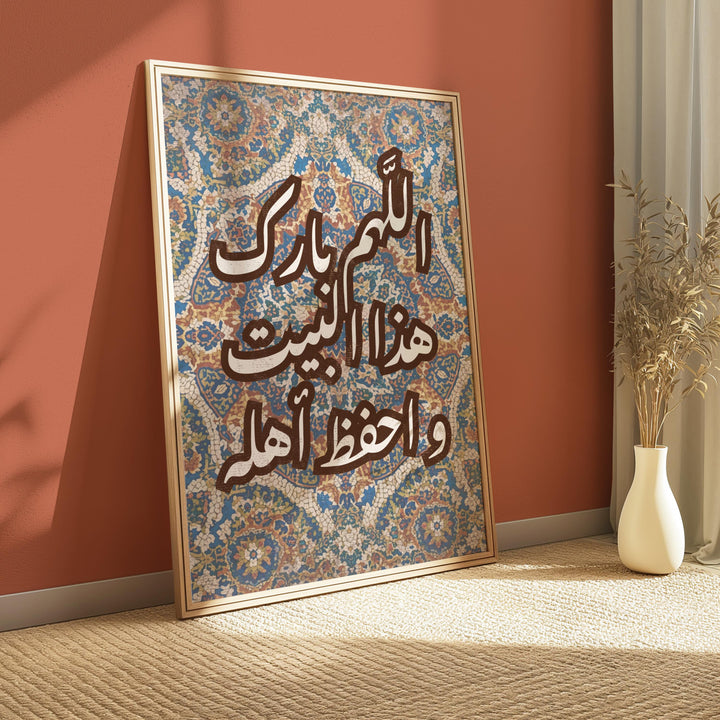 اللّٰهم بارك
هذا البيت
و احفظ أهله